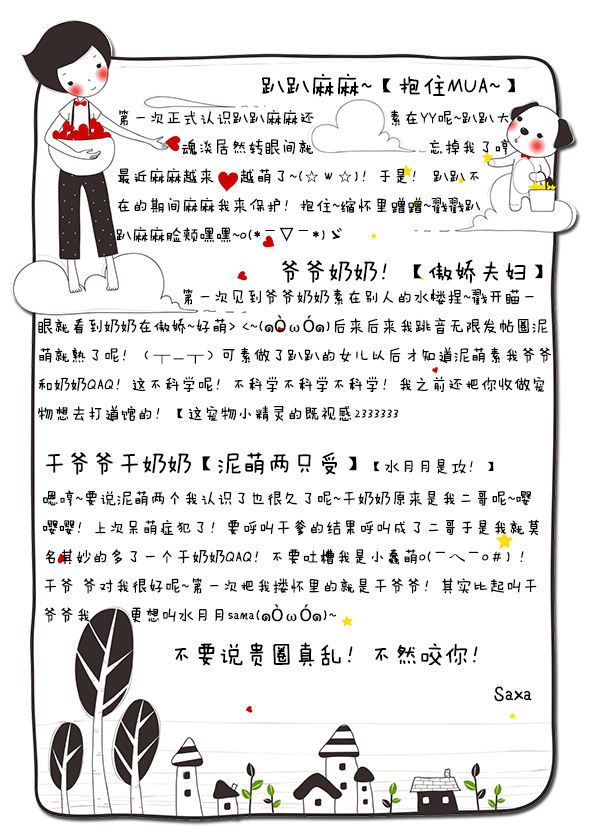 趴趴麻麻~【 抱住MUA~ 】
第一次正式认识趴趴麻麻还 素在YY呢~趴趴大
魂淡居然转眼间就 忘掉我了哼
最近麻麻越来 越萌了~(☆ w ☆)！于是！ 趴趴不
在的期间麻麻我来保护！抱住~缩怀里蹭蹭~戳戳趴
趴麻麻脸颊嘿嘿~o(*￣▽￣*)ゞ
爷爷奶奶！【傲娇夫妇】
第一次见到爷爷奶奶素在别人的水楼捏~戳开瞄一
眼就看到奶奶在傲娇~好萌> <~(๑Ò ω Ó๑)后来后来我跳音无限发帖圈泥
萌就熟了呢！（┬＿┬）可素做了趴趴的女儿以后才知道泥萌素我爷爷
和奶奶QAQ！这不科学呢！不科学不科学不科学！我之前还把你收做宠
物想去打道馆的！【这宠物小精灵的既视感2333333
干爷爷干奶奶【泥萌两只受】【水月月是攻！】
嗯哼~要说泥萌两个我认识了也很久了呢~干奶奶原来是我二哥呢~嘤
嘤嘤！上次呆萌症犯了！要呼叫干爹的结果呼叫成了二哥于是我就莫
名其妙的多了一个干奶奶QAQ！不要吐槽我是小蠢萌o(￣ヘ￣o#)！
干爷 爷对我很好呢~第一次把我搂怀里的就是干爷爷！其实比起叫干
爷爷我 更想叫水月月sama(๑Ò ω Ó๑)~
不要说贵圈真乱！不然咬你！
Saxa